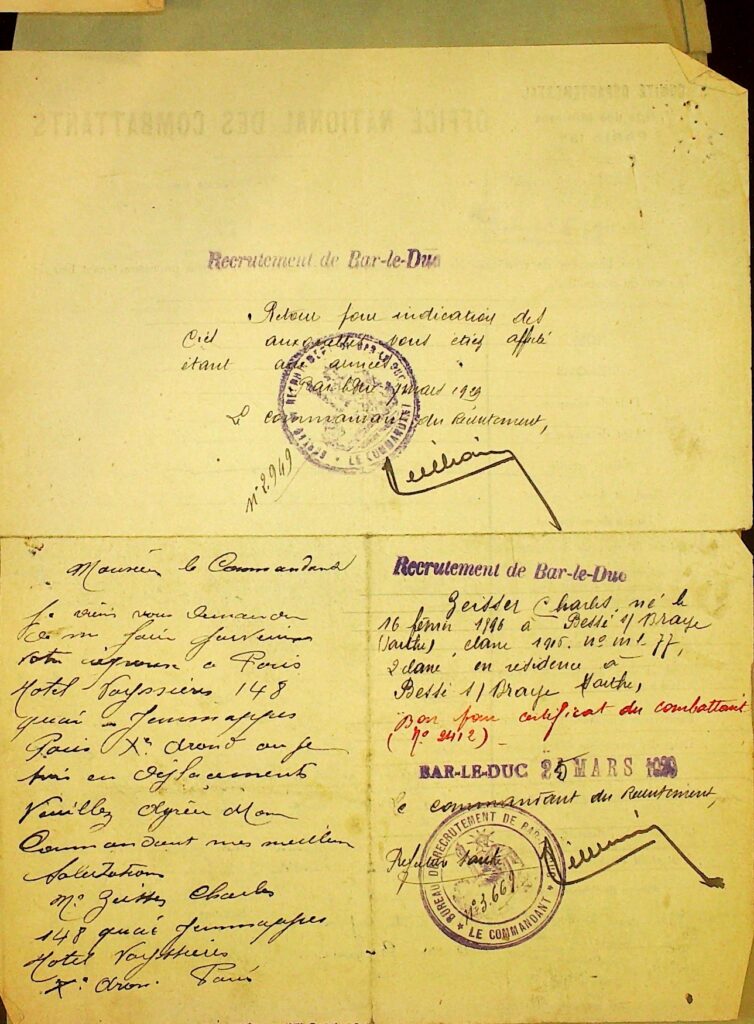 COMITÉ DÉPARTEMENTAL
OFFICE NATIONAL DES COMBATTANTS
Recrutement de Bar-le-Duc
Retour pour indication des
Ciés auxquelles vous étiez affecté
étant aux armées
Bar le Duc mars 1929
Le commandant du Recrutement,
LE COMMANDANT
n° 2.949
Monsieur le Commandant
Je viens vous demander
de me faire parvenir
votre réponse a Paris
Hotel Vayssières 148
quai Jemmappes
Paris Xe arond ou je
suis en déplacements
Veuillez agréer Mon
Commandant mes meilleurs
Salutations
Mr Zeisser Charles
148 quai Jemmappes
Hotel Vayssières
Xe aron. Paris
Recrutement de Bar-le-Duc
Zeisser Charles, né le
16 février 1896 à Bessé s/ Braye
(Sarthe), classe 1915. n° mle 77,
2 classe en résidence à
Bessé s/ Braye Sarthe,
Bon pour certificat du combattant
(N° 2412)
BAR-LE-DUC 25 MARS 1929
Le commandant du Recrutement,
BUREAU DE RECRUTEMENT DE BAR-LE-DUC
LE COMMANDANT
N° 3.669